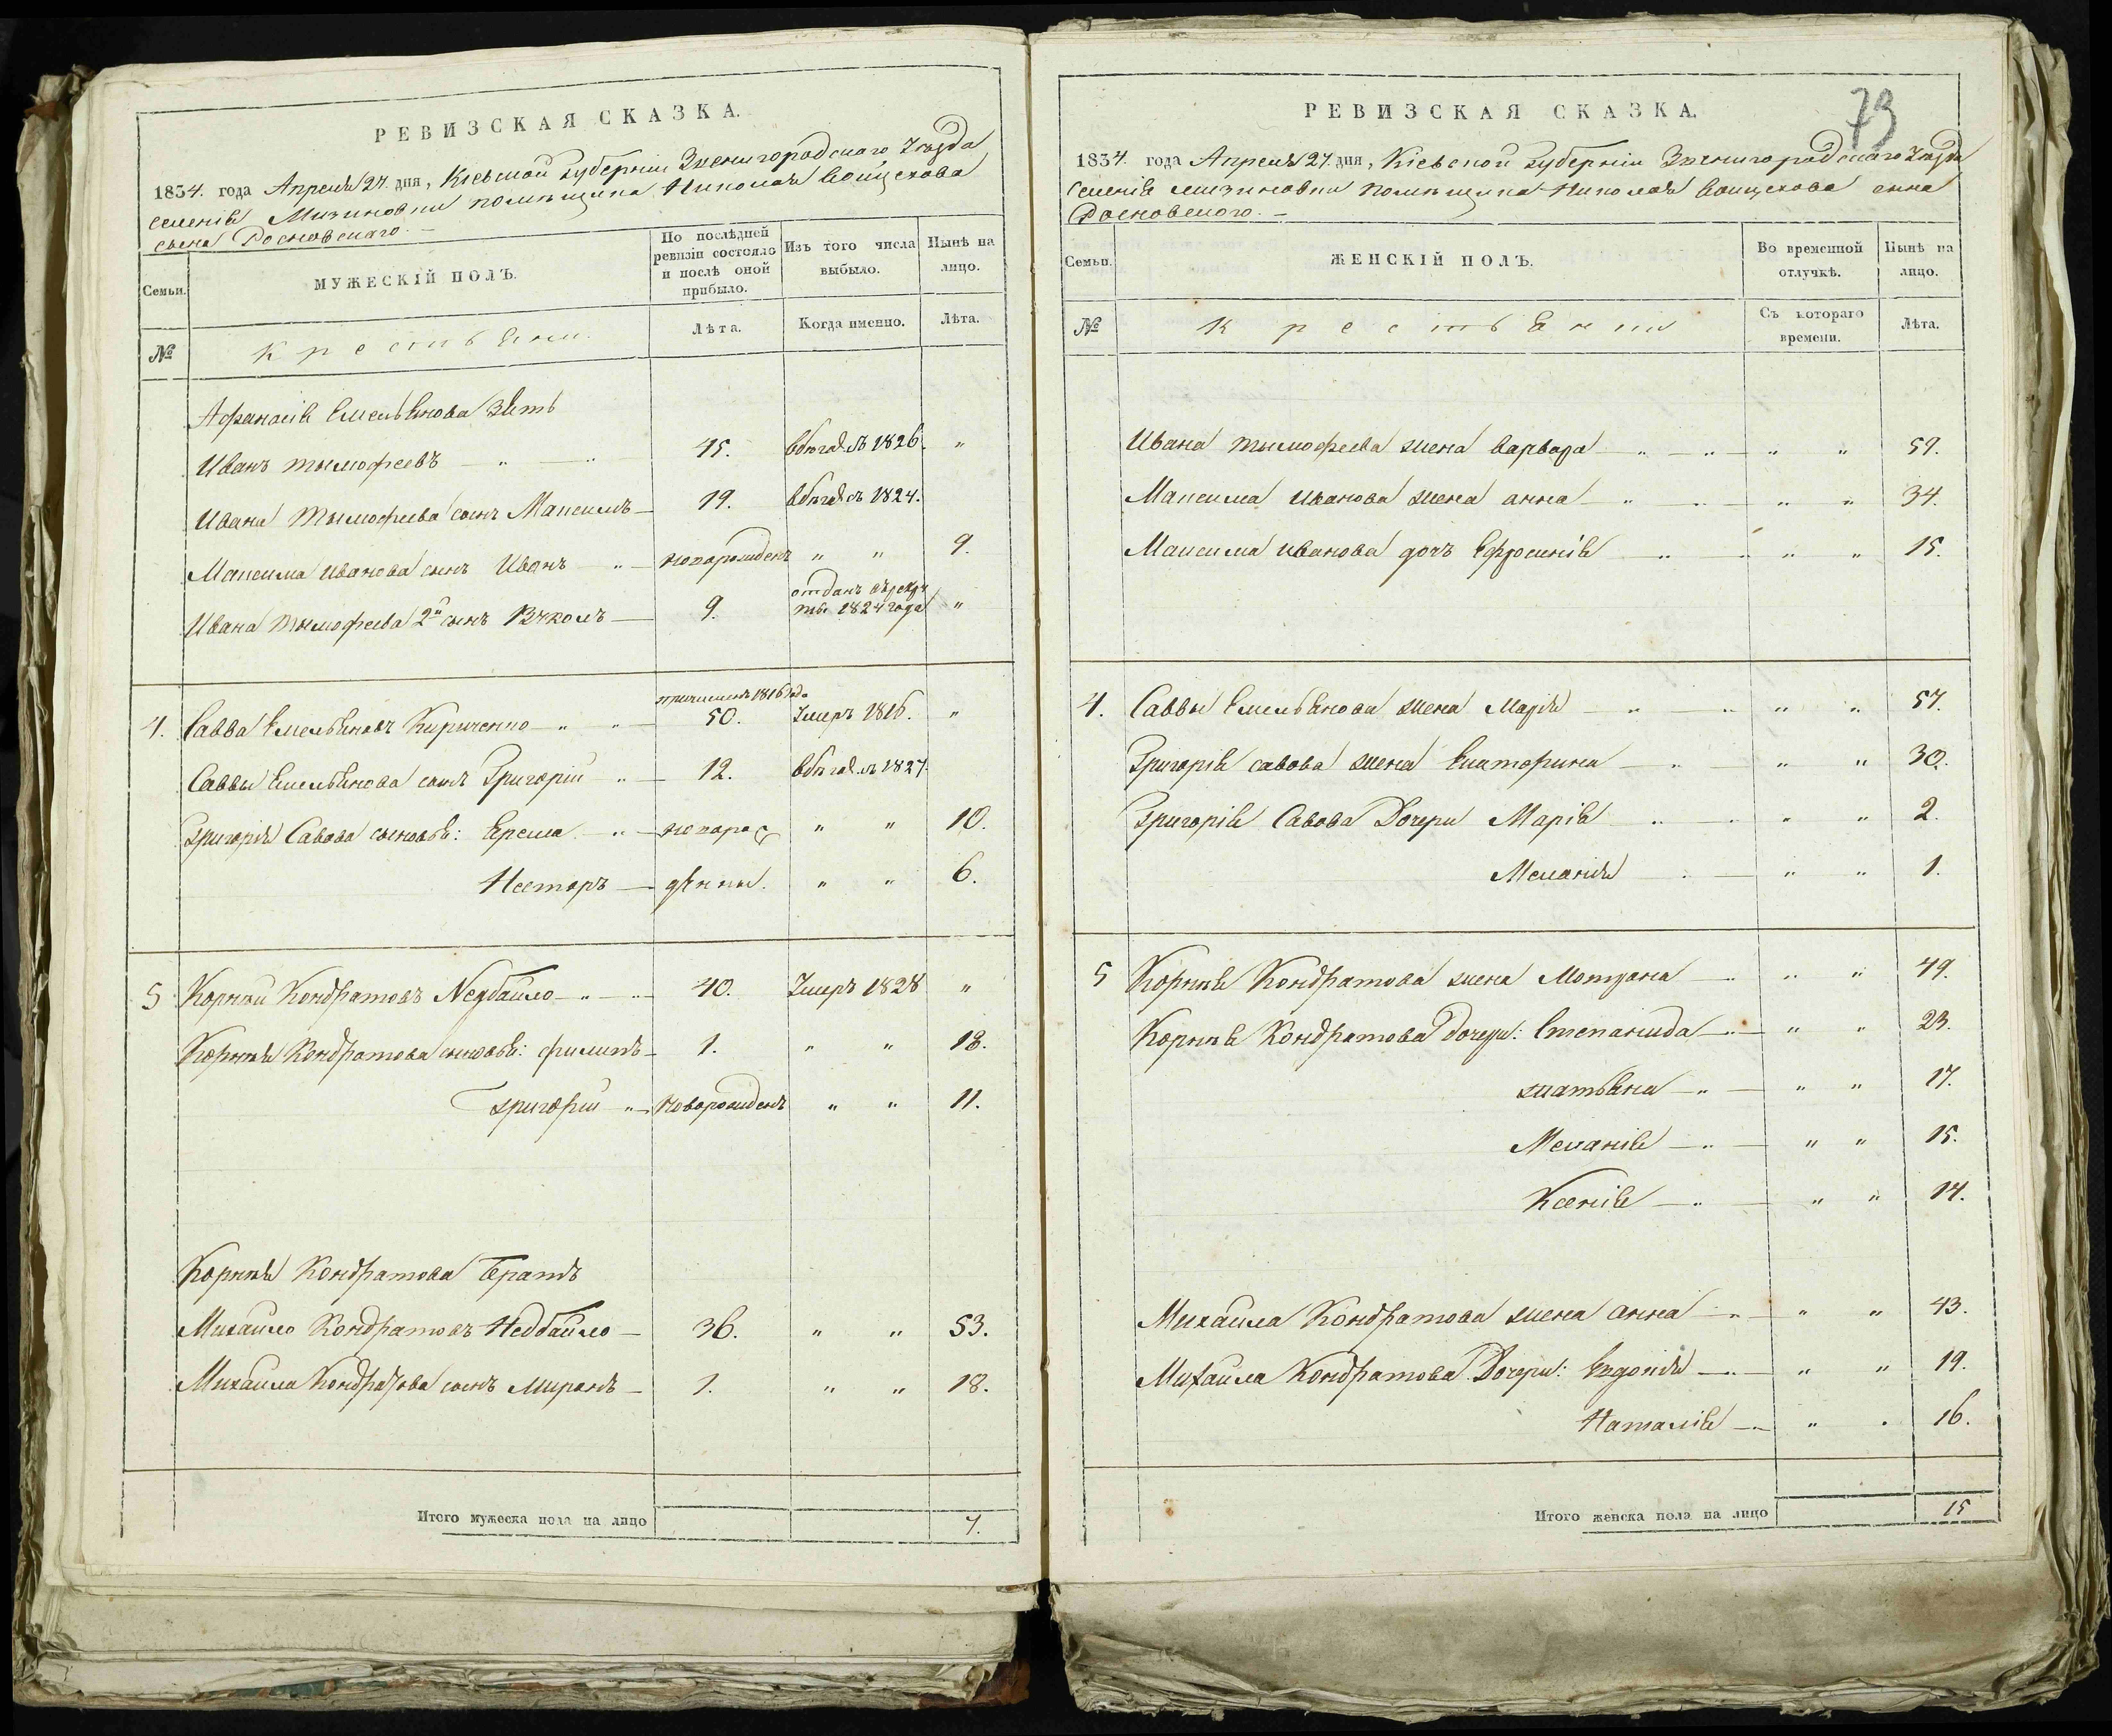 РЕВИЗСКАЯ СКАЗКА.
1834. года Апреля 27. дня, Кіевской губерніи Звенигородскаго Уезда
селенія Мизиновки помещика Николая Войцехова
сына Росновского. —
Семьи.
МУЖЕСКІЙ ПОЛЪ.
По послѣдней ревизіи состояло и послѣ оной прибыло.
Изъ того числа выбыло.
Нынѣ на лицо.
№
Крестьяни
Лѣта.
Когда именно.
Лѣта.
Афанасія Емельянова Зять
Иванъ тымофеевъ — 45. в бегах съ 1826. "
Ивана Тымофеева сынъ Максимъ — 19. в бегах съ 1824.
Максима Иванова сынъ Иванъ — новорожденъ " " 9.
Ивана Тымофеева 2й сынъ — 9. отданъ въ рекруты 1824 года "
причисленъ 1816 года
4. Савва Емельяновъ Кириченко — 50. Умеръ 1816. "
Саввы Емельянова сынъ Григорій — 12. в бегах съ 1827.
Григорія Савова сыновья: Ерема — новорож " " 10.
Несторъ — денны. " " 6.
5 Корнѣй Кондратовъ Недбайло — 40. Умеръ 1828 "
Корнѣя Кондратова сыновья: филипъ — 1. " " 18.
григорій — Новорожденъ " " 11.
Корнѣя Кондратова Братъ
Михайло Кондратовъ Недбайло — 36. " " 53.
Михайла Кондратова сынъ Миронъ — 1. " " 18.
Итого мужеска пола на лицо 7.
РЕВИЗСКАЯ СКАЗКА.
73
1834. года Апреля 27. дня, Кіевской губерніи Звенигородскаго Уезда
селенія мизиновки помещика Николая Войцехова сына
Росновского. —
Семьи.
ЖЕНСКІЙ ПОЛЪ.
Во временной отлучкѣ.
Нынѣ на лицо.
№
Крестьянии
Съ котораго времени.
Лѣта.
Ивана тымофеева жена варвара — " " 59.
Максима Иванова жена анна — " " 34.
Максима иванова дочь Ефросинія — " " 15.
4. Саввы Емельянова жена Марія — " " 57.
Григорія савова жена Екатерина — " " 30.
Григорія Савова Дочери Марія — " " 2.
Меланія — " " 1.
5 Корнѣя Кондратова жена Мотрона — " " 49.
Корнѣя Кондратова Дочери: Степанида — " " 23.
татьяна — " " 17.
Меланія — " " 15.
Ксенія — " " 14.
Михайла Кондратова жена анна — " " 43.
Михайла Кондратова Дочери: Евдокія — " " 19.
Наталія — " " 16.
Итого женска пола на лицо 15